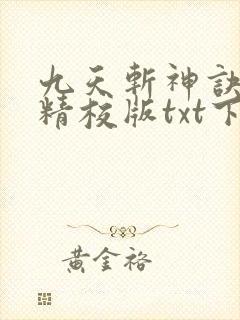 九天斬神訣
精校版txt下
黃金裕